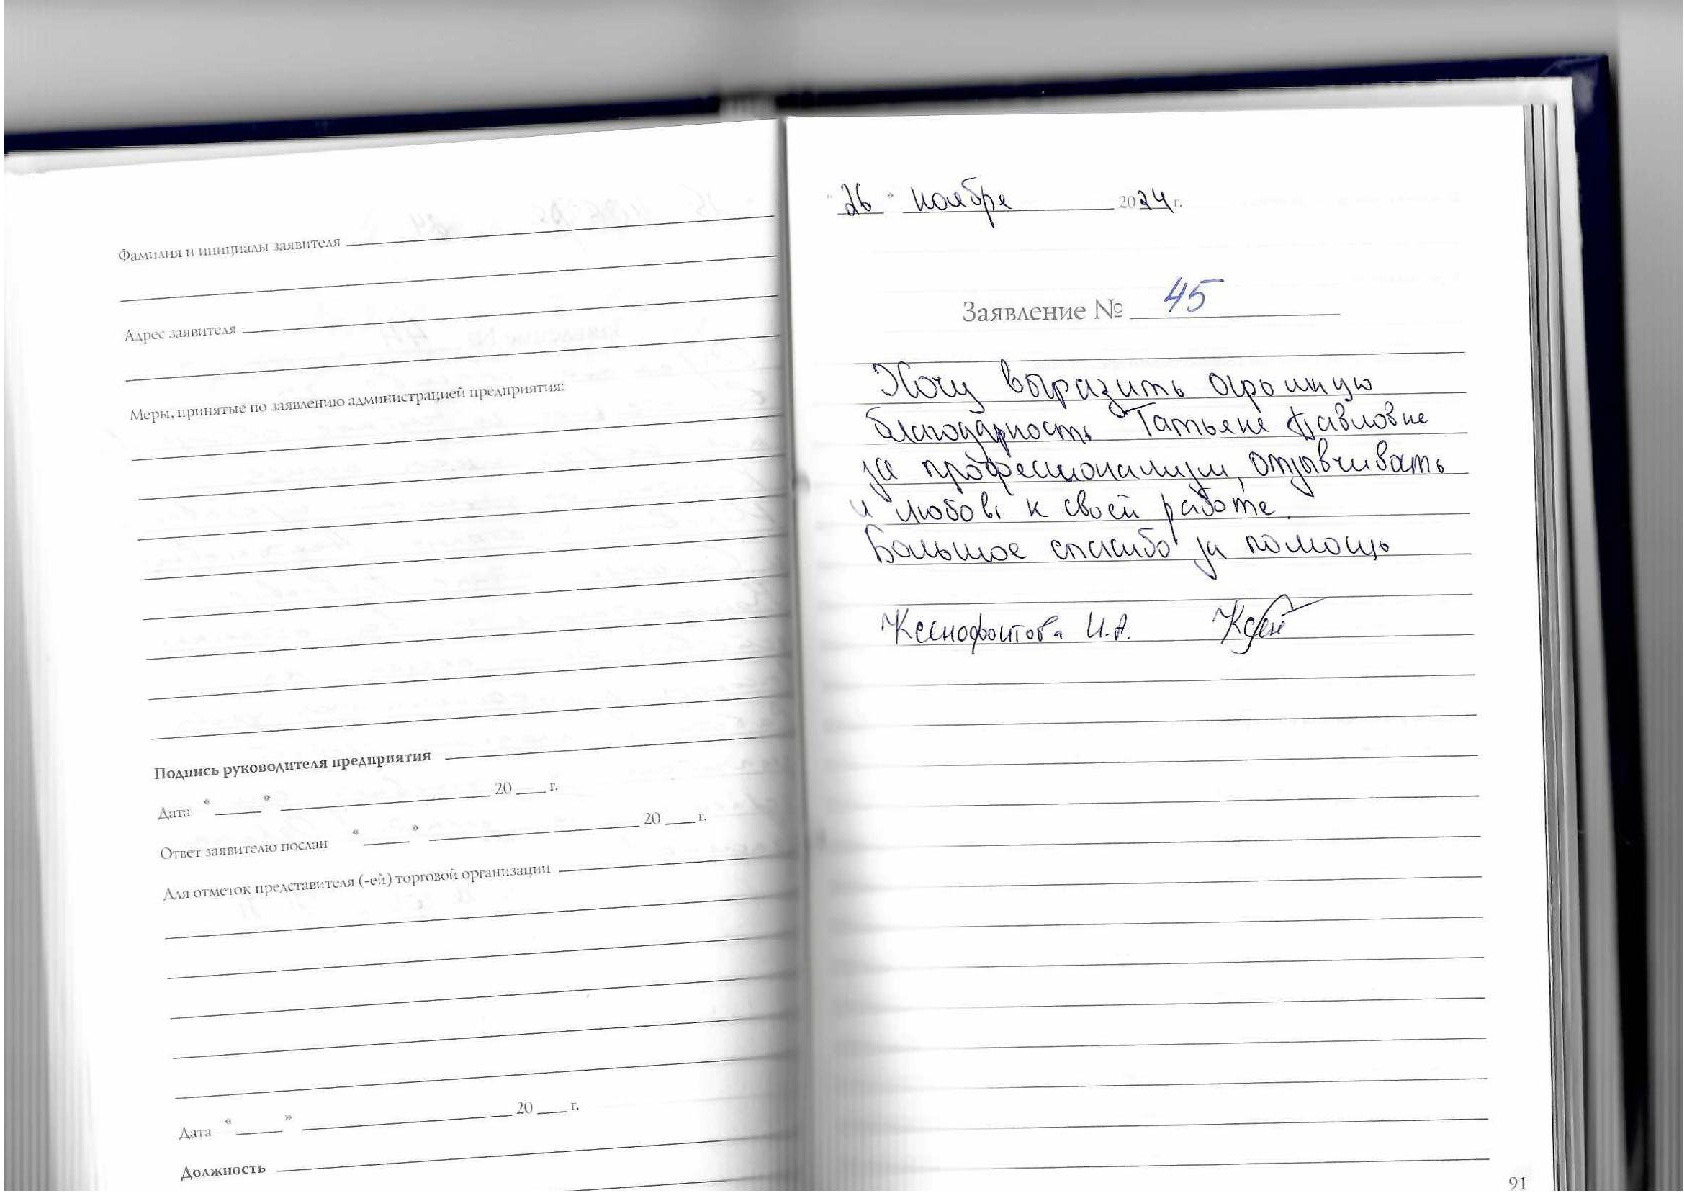 Фамилия и инициалы заявителя
Адрес заявителя
Меры, принятые по заявлению администрацией предприятия:
Подпись руководителя предприятия
Дата “ ” 20 г.
Ответ заявителю послан “ ” 20 г.
Для отметок представителя (-ей) торговой организации
Дата “ ” 20 г.
Должность
"26" ноября 2024 г.
Заявление № 45
Хочу выразить огромную
благодарность Татьяне Павловне
за профессионализм, отзывчивать
и любовь к своей работе.
Большое спасибо за помощь
Ксенофонтова И.А.
91